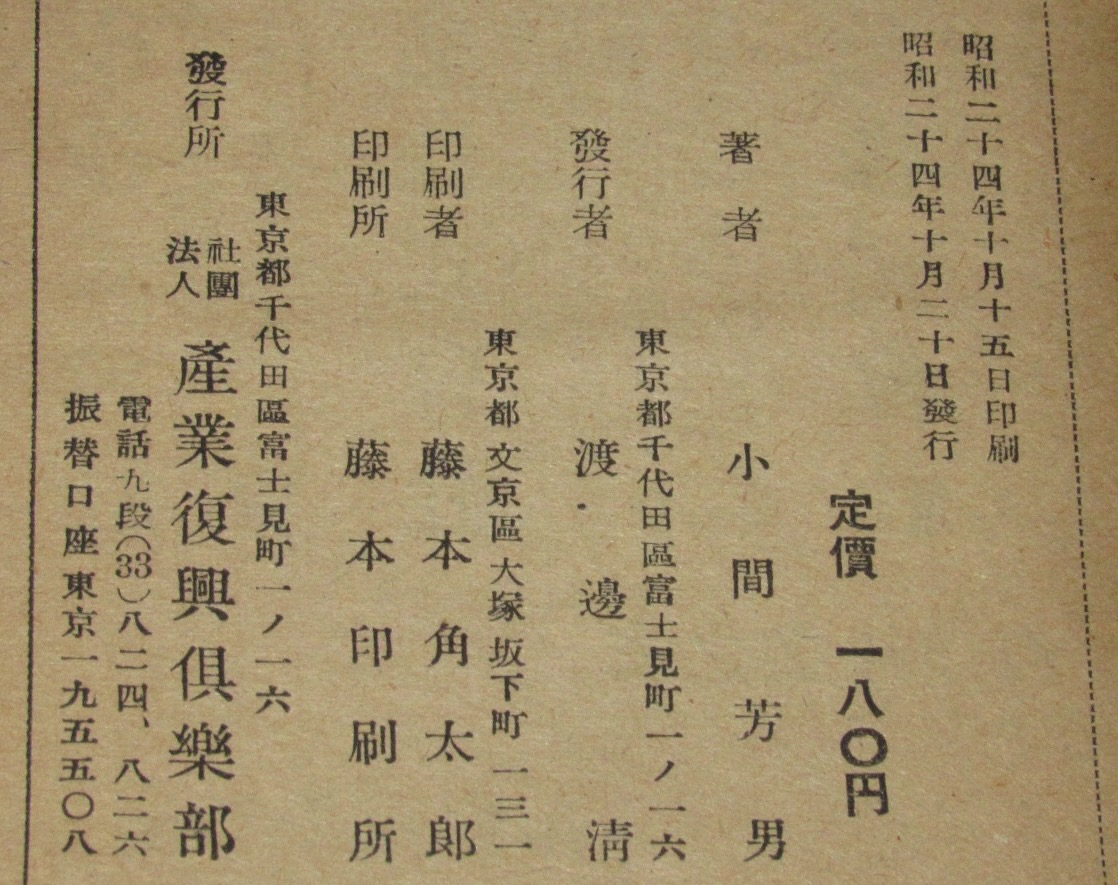 昭和二十四年十月十五日印刷
昭和二十四年十月二十日發行
定價　一八〇円
著者　小間芳男
東京都千代田區富士見町一ノ一六
發行者　渡邊淸
東京都文京區大塚坂下町一三一
印刷者　藤本角太郎
印刷所　藤本印刷所
東京都千代田區富士見町一ノ一六
發行所　社團法人　產業復興俱樂部
電話九段(33)八二四、八二六
振替口座東京一九五五〇八